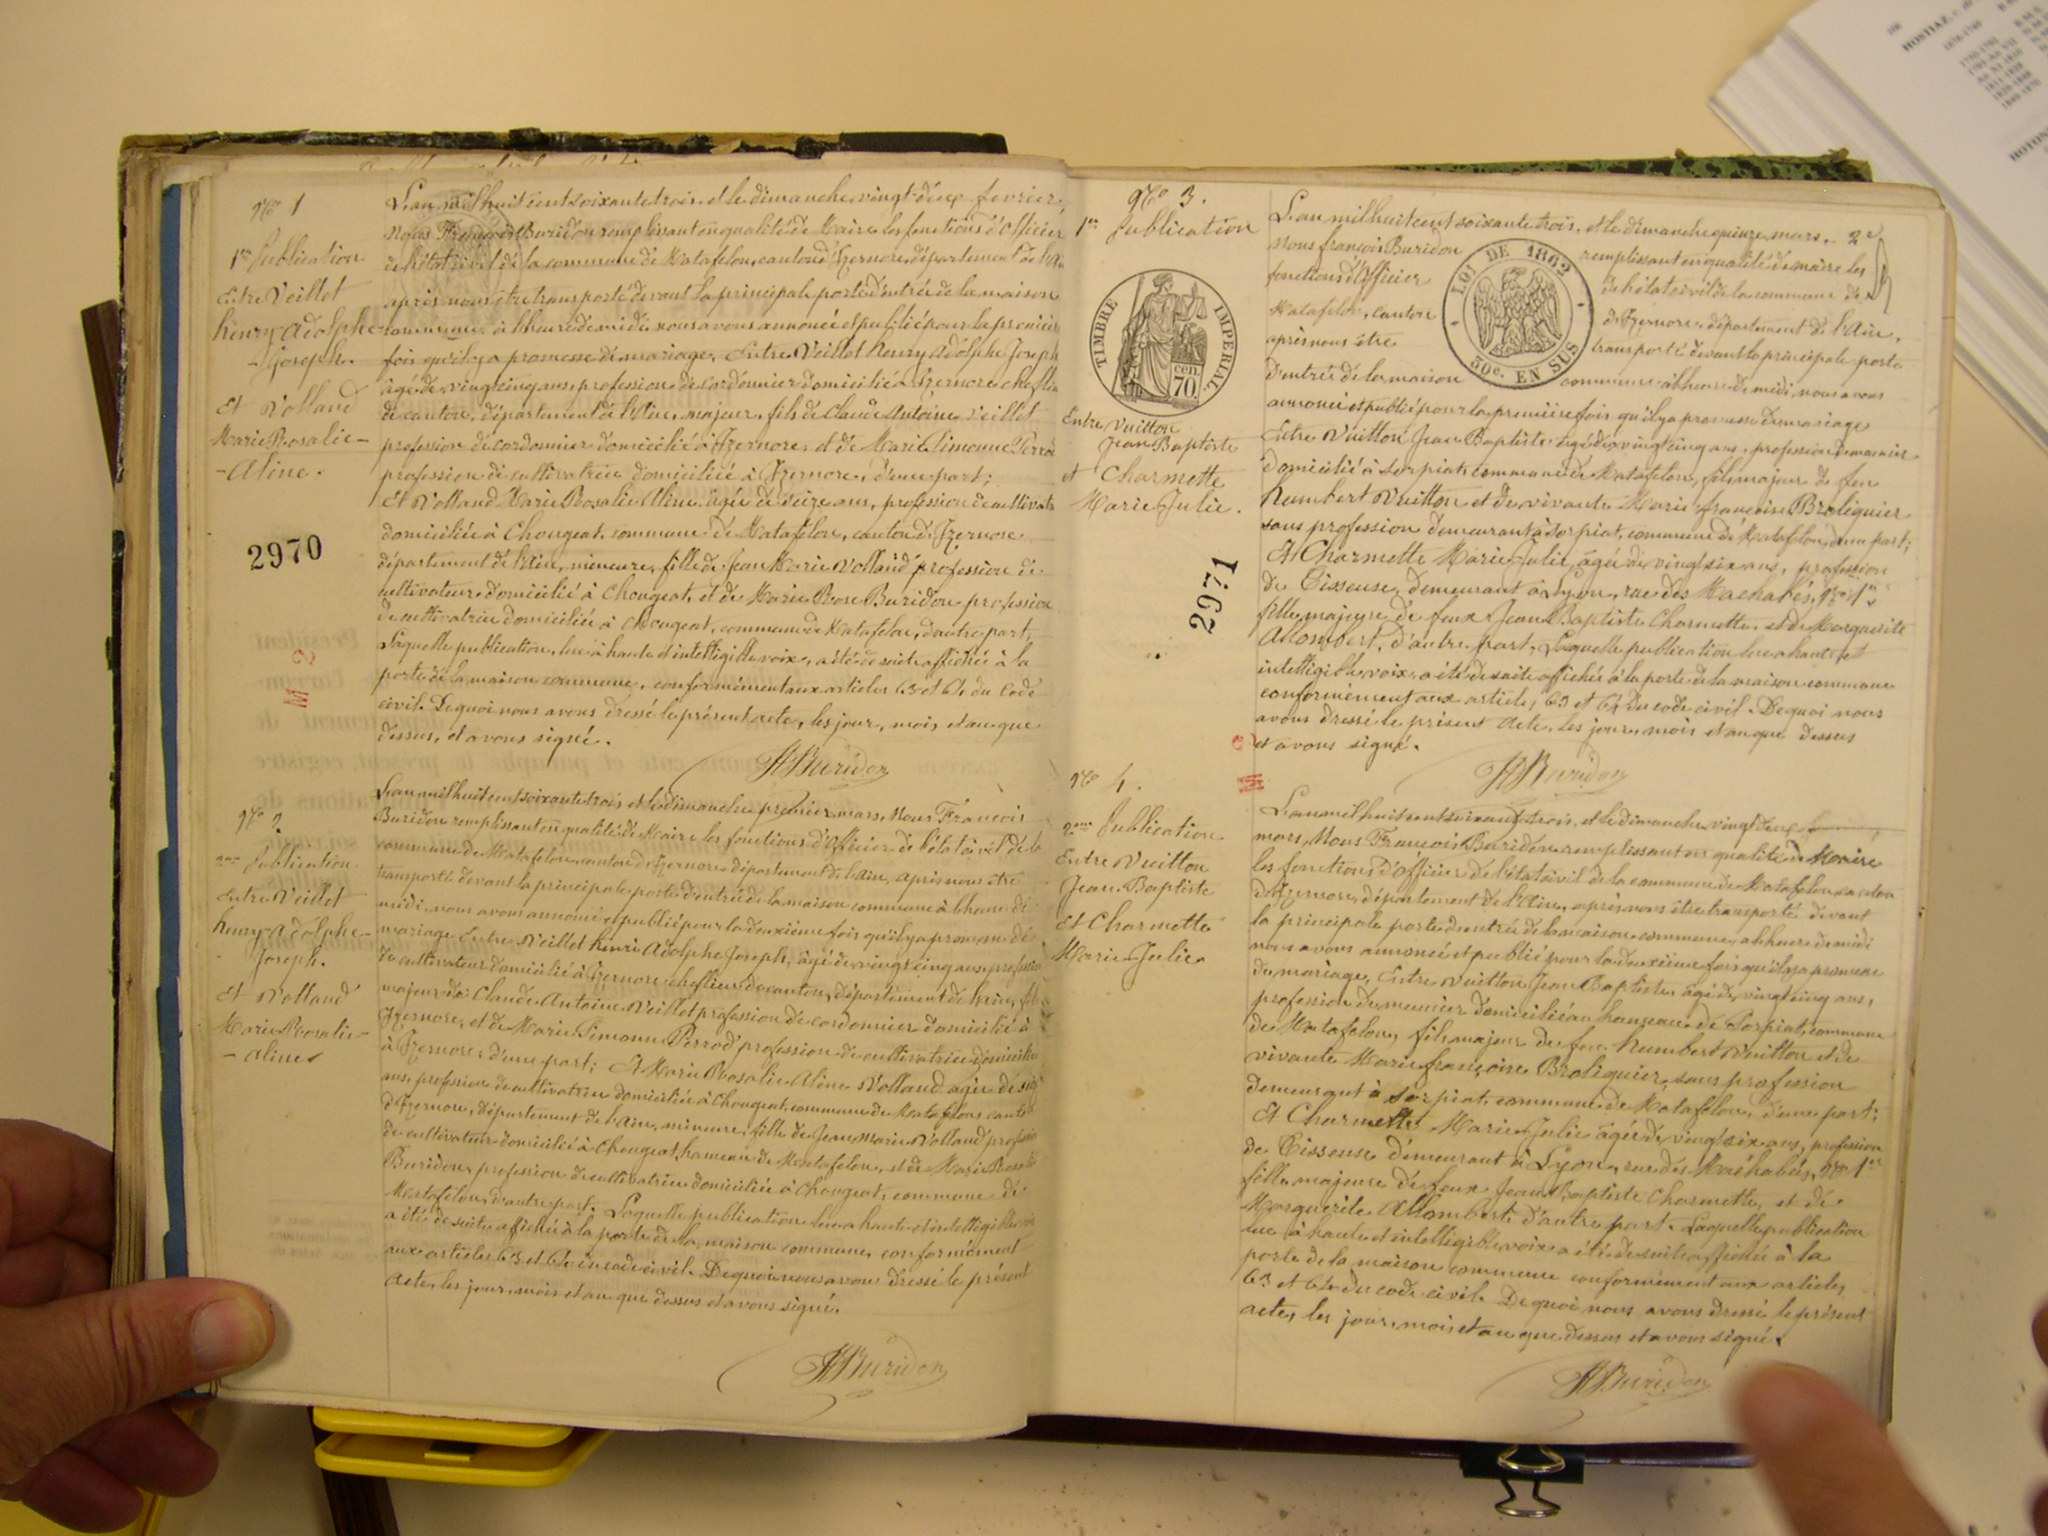 Nº 1
1re Publication
Entre Veillet
henry Adolphe
Joseph.
Et Volland
Marie Rosalie
Aline.
2970
L'an mil huit cent soixante trois, et le dimanche vingt deux février
nous François Buridon remplissant en qualité de Maire les fonctions d'Officier
de l'état civil de la commune de Matafelon, canton d'Izernore, département de l'Ain
après nous être transporté devant la principale porte d'entrée de la maison
commune à l'heure de midi, nous avons annoncé et publié pour la première
fois qu'il y a promesse de mariage, Entre Veillet henry Adolphe Joseph
âgé de vingt cinq ans, profession de cordonnier domicilié à Izernore chef lieu
de canton, département de l'Ain, majeur, fils de Claude Antoine Veillet
profession de cordonnier domicilié à Izernore, et de Marie Simonne Perrod
profession de cultivatrice domiciliée à Izernore, d'une part;
Et Volland Marie Rosalie Aline âgée de seize ans, profession de cultivatrice
domiciliée à Chougeat, commune de Matafelon, canton d'Izernore
département de l'Ain, mineure, fille de Jean Marie Volland profession de
cultivateur domicilié à Chougeat, et de Marie Rose Buridon profession
de cultivatrice domiciliée à Chougeat, commune de Matafelon, d'autre part,
Laquelle publication, lue à haute et intelligible voix, a été de suite affichée à la
porte de la maison commune, conformément aux articles 63 et 64 du Code
civil. De quoi nous avons dressé le présent acte, les jour, mois, et an que
dessus, et avons signé.
Buridon
Nº 2
2me Publication
Entre Veillet
henry Adolphe
Joseph.
Et Volland
Marie Rosalie
Aline
L'an mil huit cent soixante trois et le dimanche premier mars, Nous François
Buridon remplissant en qualité de Maire les fonctions d'Officier de l'état civil de la
commune de Matafelon canton d'Izernore département de l'Ain, après nous être
transporté devant la principale porte d'entrée de la maison commune à l'heure de
midi, nous avons annoncé et publié pour la deuxième fois qu'il y a promesse de
mariage Entre Veillet henri Adolphe Joseph, âgé de vingt cinq ans profession
de cultivateur domicilié à Izernore chef lieu de canton, département de l'Ain, fils
majeur de Claude Antoine Veillet profession de cordonnier domicilié à
Izernore, et de Marie Simonne Perrod profession de cultivatrice domiciliée
à Izernore, d'une part; Et Marie Rosalie Aline Volland âgée de seize
ans, profession de cultivatrice domiciliée à Chougeat, commune de Matafelon canton
d'Izernore, département de l'Ain, mineure, fille de Jean Marie Volland profession
de cultivateur domicilié à Chougeat, hameau de Matafelon, et de Marie Rose
Buridon, profession de cultivatrice domiciliée à Chougeat, commune de
Matafelon, d'autre part. Laquelle publication lue à haute et intelligible voix
a été de suite affichée à la porte de la maison commune, conformément
aux articles 63 et 64 du code civil. De quoi nous avons dressé le présent
acte, les jour, mois et an que dessus et avons signé.
Buridon
Nº 3.
1re Publication
TIMBRE IMPERIAL
70 cen
Entre Vuitton
Jean Baptiste
et Charmette
Marie Julie.
2971
LOI DE 1862
30c. EN SUS
L'an mil huit cent soixante trois, et le dimanche quinze mars, 2e
nous françois Buridon remplissant en qualité de maire les
fonctions d'Officier de l'état civil de la commune de
Matafelon, canton d'Izernore, département de l'Ain,
après nous être transporté devant la principale porte
d'entrée de la maison commune à l'heure de midi, nous avons
annoncé et publié pour la première fois, qu'il y a promesse de mariage
Entre Vuitton Jean Baptiste âgé de vingt cinq ans, profession de meunier
domicilié à Sorpiat, commune de Matafelon, fils majeur de feu
humbert Vuitton et de vivante Marie françoise Broliquier
sans profession demeurant à Sorpiat, commune de Matafelon, d'une part;
Et Charmette Marie Julie, âgée de vingt six ans, profession
de Tisseuse, demeurant à Lyon, rue des Machabés, Nº 1er
fille majeure de feux Jean Baptiste Charmette, et de Marguerite
Allombert, d'autre part, Laquelle publication lue à haute et
intelligible voix, a été de suite affichée à la porte de la maison commune
conformément aux articles 63 et 64 du code civil. De quoi nous
avons dressé le présent acte, les jour, mois et an que dessus
et avons signé.
Buridon
Nº 4.
2eme Publication
Entre Vuitton
Jean Baptiste
Et Charmette
Marie Julie
L'an mil huit cent soixante trois, et le dimanche vingt deux
mars, Nous François Buridon remplissant en qualité de Maire
les fonctions d'Officier de l'état civil de la commune de Matafelon, canton
d'Izernore, département de l'Ain, après nous être transporté devant
la principale porte d'entrée de la maison commune, à l'heure de midi
nous avons annoncé et publié pour la deuxième fois qu'il y a promesse
de mariage, Entre Vuitton Jean Baptiste, âgé de vingt cinq ans,
profession de meunier domicilié au hameau de Sorpiat, commune
de Matafelon, fils majeur de feu humbert Vuitton et de
vivante Marie françoise Broliquier, sans profession
demeurant à Sorpiat, commune de Matafelon, d'une part;
Et Charmette Marie Julie âgée de vingt six ans, profession
de Tisseuse demeurant à Lyon, rue des Machabés, Nº 1er
fille majeure de feux Jean Baptiste Charmette, et de
Marguerite Allombert, d'autre part. Laquelle publication
lue à haute et intelligible voix a été de suite affichée à la
porte de la maison commune conformément aux articles
63 et 64 du code civil. De quoi nous avons dressé le présent
acte, les jour, mois et an que dessus et avons signé.
Buridon